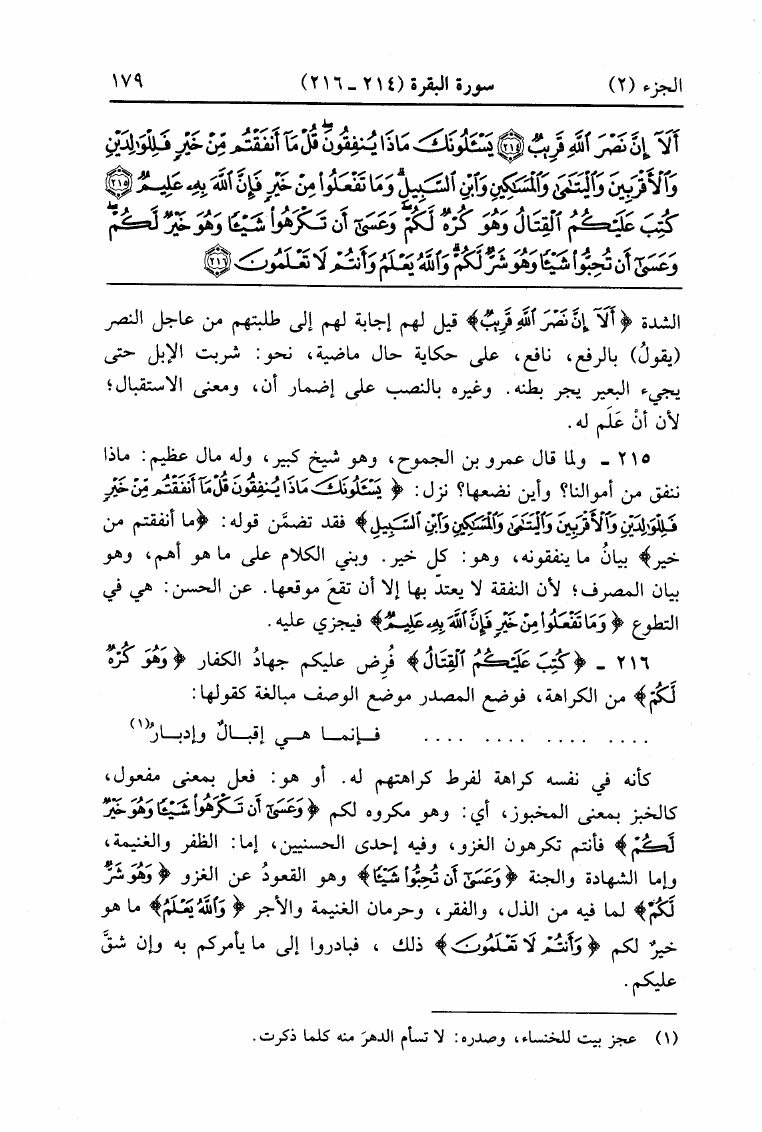 الجزء (٢) سورة البقرة (٢١٤ ـ ٢١٦) ١٧٩
أَلَآ إِنَّ نَصْرَ ٱللَّهِ قَرِيبٌ ٢١٤ يَسْـَٔلُونَكَ مَاذَا يُنفِقُونَۖ قُلْ مَآ أَنفَقْتُم مِّنْ خَيْرٍ فَلِلْوَٰلِدَيْنِ
وَٱلْأَقْرَبِينَ وَٱلْيَتَٰمَىٰ وَٱلْمَسَٰكِينِ وَٱبْنِ ٱلسَّبِيلِۗ وَمَا تَفْعَلُوا۟ مِنْ خَيْرٍ فَإِنَّ ٱللَّهَ بِهِۦ عَلِيمٌ ٢١٥
كُتِبَ عَلَيْكُمُ ٱلْقِتَالُ وَهُوَ كُرْهٌ لَّكُمْۖ وَعَسَىٰٓ أَن تَكْرَهُوا۟ شَيْـًٔا وَهُوَ خَيْرٌ لَّكُمْۖ
وَعَسَىٰٓ أَن تُحِبُّوا۟ شَيْـًٔا وَهُوَ شَرٌّ لَّكُمْۗ وَٱللَّهُ يَعْلَمُ وَأَنتُمْ لَا تَعْلَمُونَ ٢١٦
الشدة ﴿أَلَآ إِنَّ نَصْرَ ٱللَّهِ قَرِيبٌ﴾ قيل لهم إجابة لهم إلى طلبتهم من عاجل النصر
(يقولُ) بالرفع، نافع، على حكاية حال ماضية، نحو: شربت الإبل حتى
يجيء البعير يجر بطنه. وغيره بالنصب على إضمار أن، ومعنى الاستقبال؛
لأن أنْ عَلَم له.
٢١٥ ـ ولما قال عمرو بن الجموح، وهو شيخ كبير، وله مال عظيم: ماذا
ننفق من أموالنا؟ وأين نضعها؟ نزل: ﴿يَسْـَٔلُونَكَ مَاذَا يُنفِقُونَ قُلْ مَآ أَنفَقْتُم مِّنْ خَيْرٍ
فَلِلْوَٰلِدَيْنِ وَٱلْأَقْرَبِينَ وَٱلْيَتَٰمَىٰ وَٱلْمَسَٰكِينِ وَٱبْنِ ٱلسَّبِيلِ﴾ فقد تضمَّن قوله: ﴿ما أنفقتم من
خير﴾ بيانُ ما ينفقونه، وهو: كل خير. وبني الكلام على ما هو أهم، وهو
بيان المصرف؛ لأن النفقة لا يعتدّ بها إلا أن تقعَ موقعها. عن الحسن: هي في
التطوع ﴿وَمَا تَفْعَلُوا۟ مِنْ خَيْرٍ فَإِنَّ ٱللَّهَ بِهِۦ عَلِيمٌ﴾ فيجزي عليه.
٢١٦ ـ ﴿كُتِبَ عَلَيْكُمُ ٱلْقِتَالُ﴾ فُرِض عليكم جهادُ الكفار ﴿وَهُوَ كُرْهٌ
لَّكُمْ﴾ من الكراهة، فوضع المصدر موضع الوصف مبالغة كقولها:
.... .... .... .... فـإنمـا هـي إقبـالٌ وإدبـارُ(١)
كأنه في نفسه كراهة لفرط كراهتهم له. أو هو: فعل بمعنى مفعول،
كالخبز بمعنى المخبوز، أي: وهو مكروه لكم ﴿وَعَسَىٰٓ أَن تَكْرَهُوا۟ شَيْـًٔا وَهُوَ خَيْرٌ
لَّكُمْ﴾ فأنتم تكرهون الغزو، وفيه إحدى الحسنيين، إما: الظفر والغنيمة،
وإما الشهادة والجنة ﴿وَعَسَىٰٓ أَن تُحِبُّوا۟ شَيْـًٔا﴾ وهو القعودُ عن الغزو ﴿وَهُوَ شَرٌّ
لَّكُمْ﴾ لما فيه من الذل، والفقر، وحرمان الغنيمة والأجر ﴿وَٱللَّهُ يَعْلَمُ﴾ ما هو
خيرٌ لكم ﴿وَأَنتُمْ لَا تَعْلَمُونَ﴾ ذلك ، فبادروا إلى ما يأمركم به وإن شقَّ
عليكم.
(١) عجز بيت للخنساء، وصدره: لا تسأم الدهرَ منه كلما ذكرت.